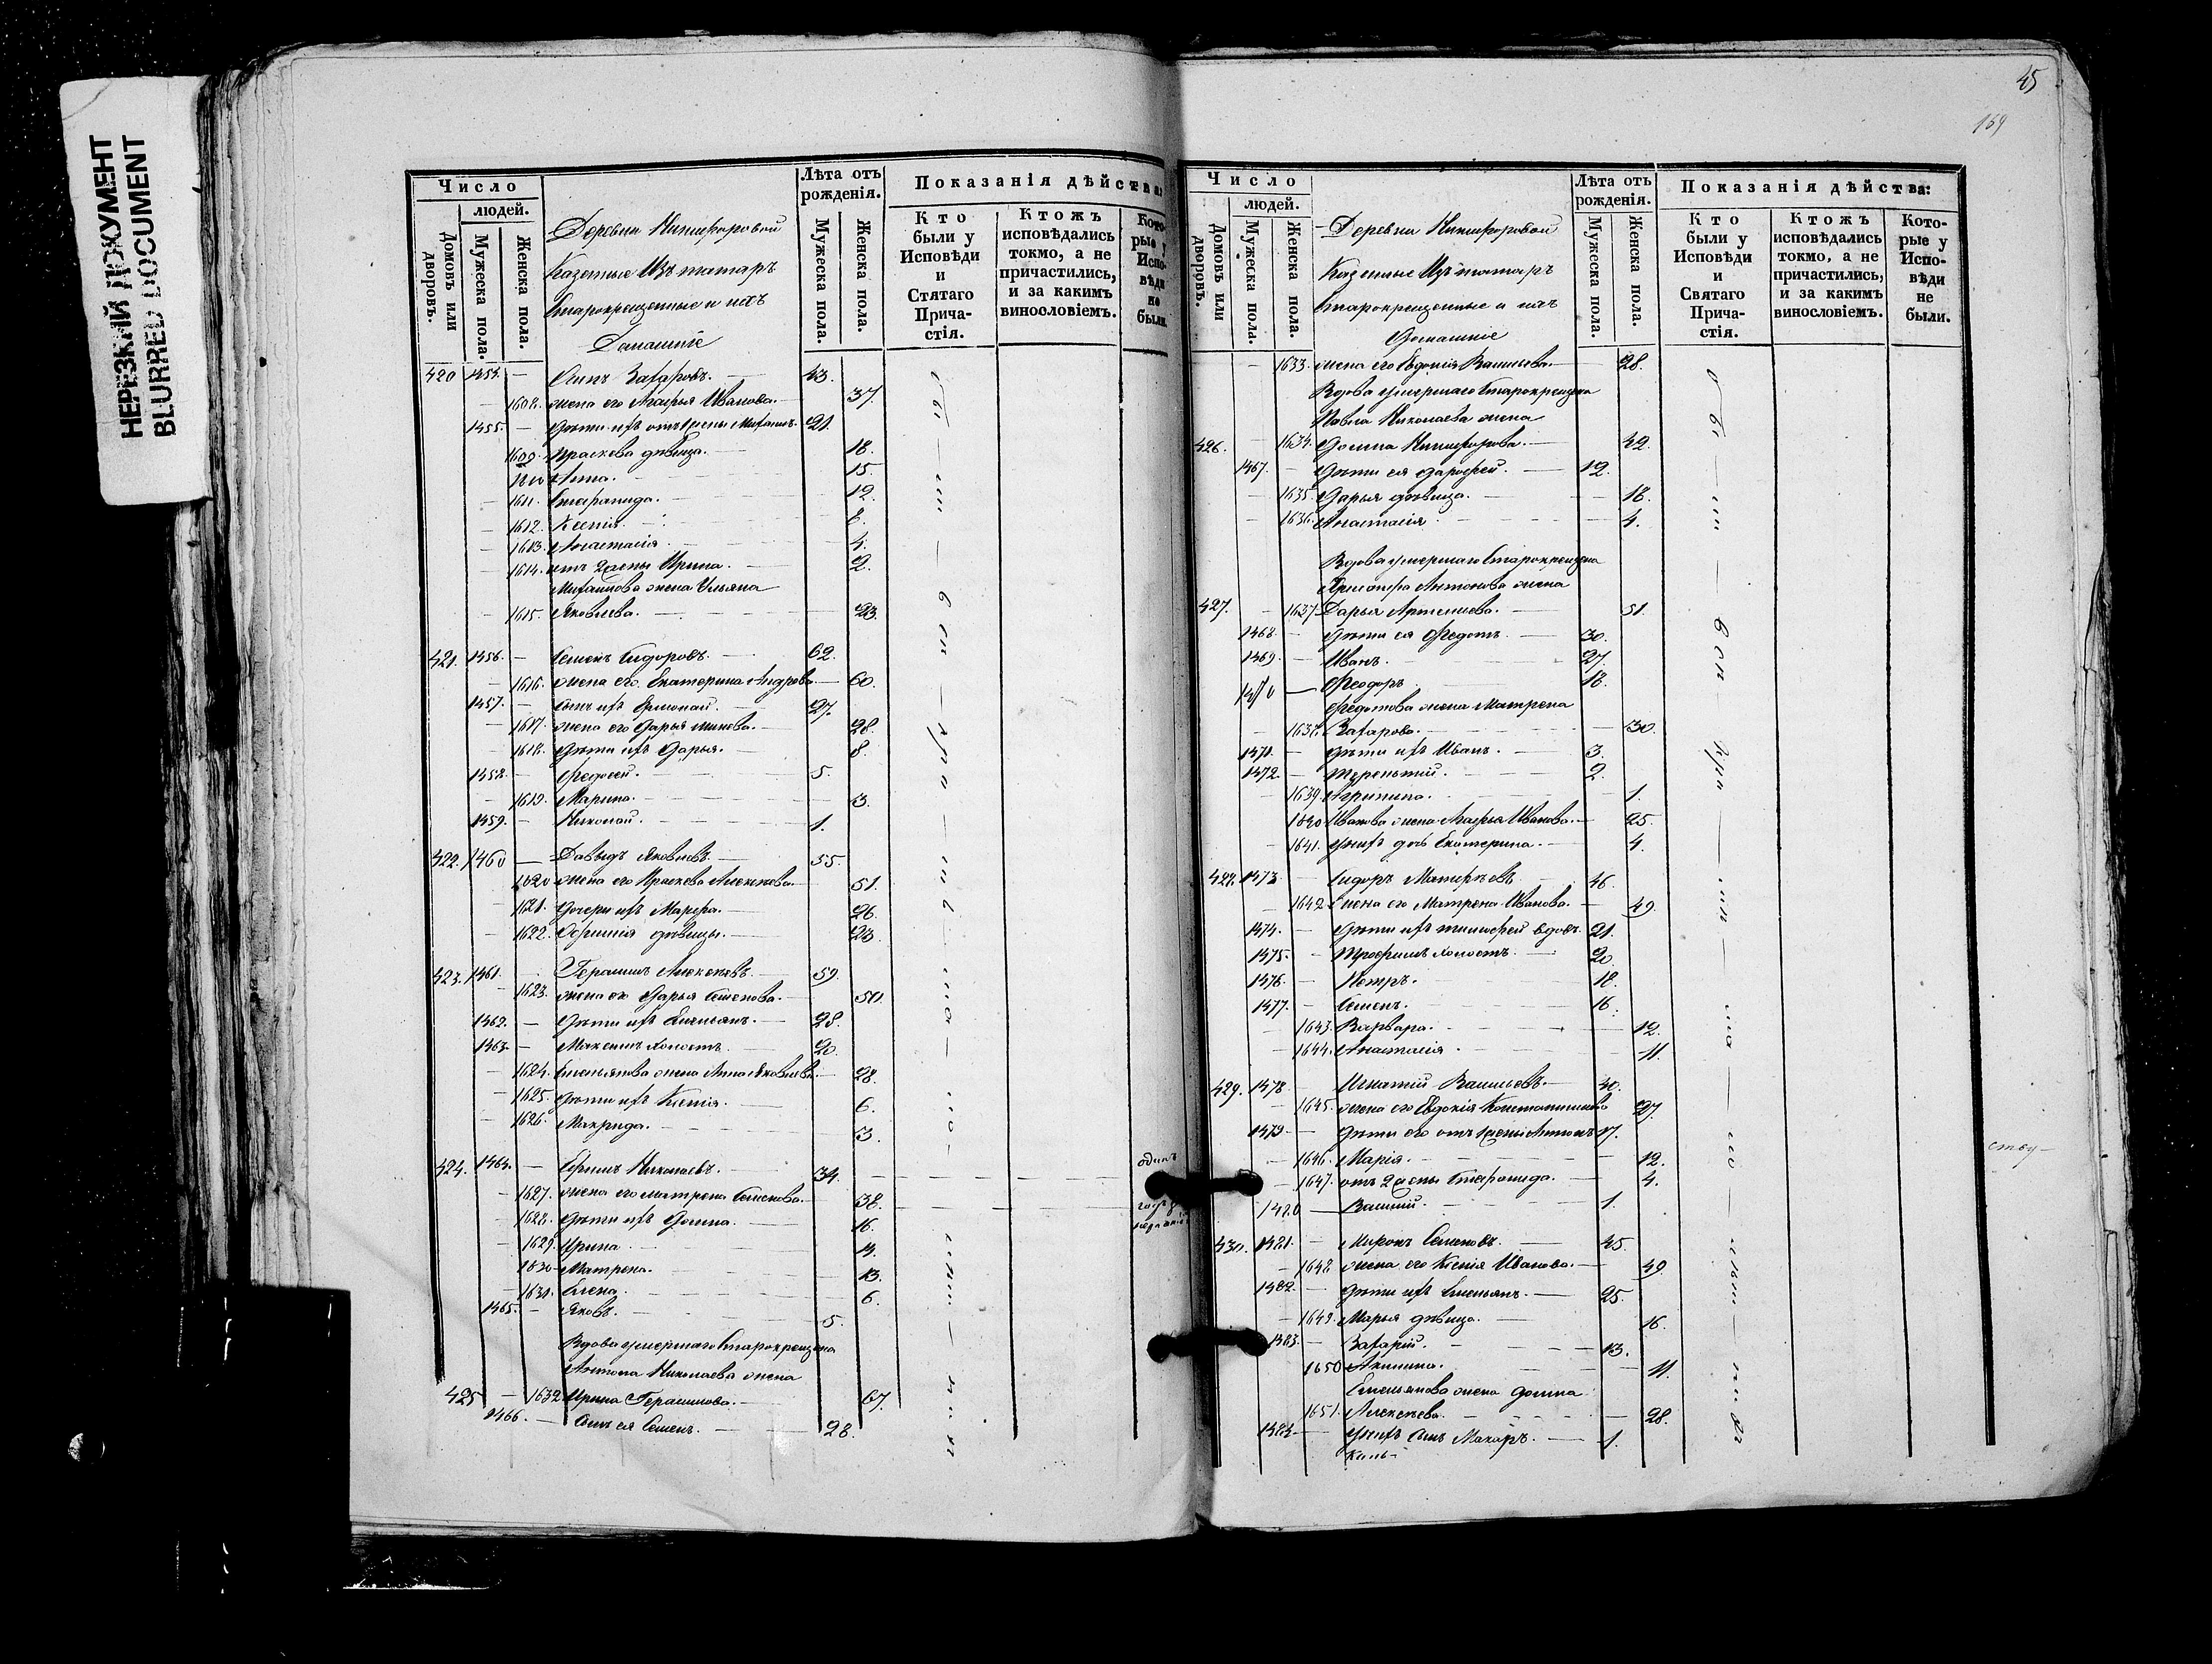 НЕРЕЗКИЙ ДОКУМЕНТ
BLURRED DOCUMENT
Число
людей.
Домовъ или дворовъ.
Мужеска пола.
Женска пола.
Деревни Никифоровой
Казенные Изъ татаръ
Старокрещенные и ихъ
Домашніе
Лѣта отъ рожденія.
Мужеска пола.
Женска пола.
Показанія дѣйства:
Кто были у Исповѣди и Стятаго Прича-стія.
Ктожъ исповѣдались токмо, а не причастились, и за какимъ винословіемъ.
Кото-рые у Испо-вѣди не были.
420 1454. — Осипъ Захаровъ. — 43.
— 1608. жена его Агафья Иванова. — 37.
1455. — дѣти ихъ отъ 1 жены Михаилъ. 21.
1609. Праскева дѣвица. — 18.
1610 Анна. — 15.
1611. Степанида. — 12.
1612. Ксенія. — 8.
1613. Анастасія — 4.
1614. отъ 2 жены Ирина. — 2.
Михайлова жена Ульяна
1615. Яковлева. — 23.
421. 1456. — Семенъ Сидоровъ. — 62.
— 1616. жена его Екатерина Андреева — 60.
1457. — сынъ ихъ Ермолай. — 27.
— 1617. жена его Дарья — 28.
— 1618. дѣти ихъ Дарья. — 8.
1458. — Федосей. — 5.
— 1619. Марина. — 3.
1459. — Николай. — 1.
422. 1460 — Давыдъ Яковлевъ. — 55.
1620 жена его Праскева Алексеева — 51.
— 1621. Дочери ихъ Марфа. — 26.
— 1622. дѣвицы. — 23.
423. 1461. — Герасимъ Алексеевъ. — 59.
— 1623. жена его Дарья Семенова. — 50.
1462. — Дѣти ихъ Емельянъ. — 28.
1463. — Максимъ холостъ. — 20.
— 1624. Емельянова жена Анна Яковлева. — 28.
— 1625. дѣти ихъ Ксенія. — 6.
— 1626. Макрида. — 3.
424. 1464. — Ефимъ Николаевъ. — 34. одинъ
— 1627. жена его Матрена Семенова. — 38.
— 1628. дѣти ихъ Домна. — 16.
— 1629. Ирина — 14.
1630 Матрена. — 13.
— 1631. Елена. — 6.
1465. — Яковъ. — 5.
Вдова умершаго Старокрещена
Антона Николаева жена
425 — 1632 Ирина Герасимова. — 67.
1466. — сынъ ея Семенъ. — 28.
45
169
Число
людей.
Домовъ или дворовъ.
Мужеска пола.
Женска пола.
Деревни Никифоровой
Казенные Изъ татаръ
Старокрещенные и ихъ
Домашніе
Лѣта отъ рожденія.
Мужеска пола.
Женска пола.
Показанія дѣйства:
Кто были у Исповѣди и Святаго Прича-стія.
Ктожъ исповѣдались токмо, а не причастились, и за какимъ винословіемъ.
Кото-рые у Испо-вѣди не были.
— 1633. жена его Евдокія Васильева. — 28.
Вдова умершаго Старокрещена
Павла Николаева жена
426. — 1634. Домна Никифорова. — 42.
1467. — Дѣти ея Дарофей. — 12.
— 1635. Дарья дѣвица. — 18.
— 1636. Анастасія — 4.
Вдова умершаго Старокрещена
Антонова жена
427. — 1637 Дарья Артемиева. — 51.
1468. — дѣти ея Федотъ. — 30.
1469. — Иванъ. — 27.
1470 — Феодоръ — 18.
Федотова жена Матрена
— 1638. Захарова. — 30.
1471. — дѣти ихъ Иванъ. — 3.
1472. — Терентій. — 2.
— 1639. Агрипина. — 1.
1640 Иванова жена Агафья Иванова. — 25.
— 1641. у нихъ дочь Екатерина. — 4.
428. 1473. — Сидоръ Матвѣевъ — 46.
— 1642 жена его Матрена Иванова. — 49.
1474. — дѣти ихъ Тимофей вдовъ. 21.
1475. — Трофимъ холостъ. — 20.
1476. — Петръ. — 18.
1477. — Семенъ. — 16.
— 1643. Варвара. — 12.
— 1644. Анастасія. — 11.
429. 1478 — Игнатій Васильевъ. — 40.
— 1645. жена его Евдокія Константинова 27.
1479 — дѣти его отъ 1 жены Антонъ 17.
— 1646. Марія. — 12.
— 1647. отъ 2 жены Степанида. — 4.
1480 — Василій. — 1.
430. 1481. — Миронъ Семеновъ. — 45.
— 1648 жена его Ксенія Иванова. — 49.
1482. — дѣти ихъ Емельянъ. — 25.
— 1649. Марья дѣвица. — 16.
1483. — Захарій. — 13.
1650 Акилина. — 11.
Емельянова жена Домна
1651. Алексеева. — 28.
1484. — у нихъ сынъ Макаръ. — 1.